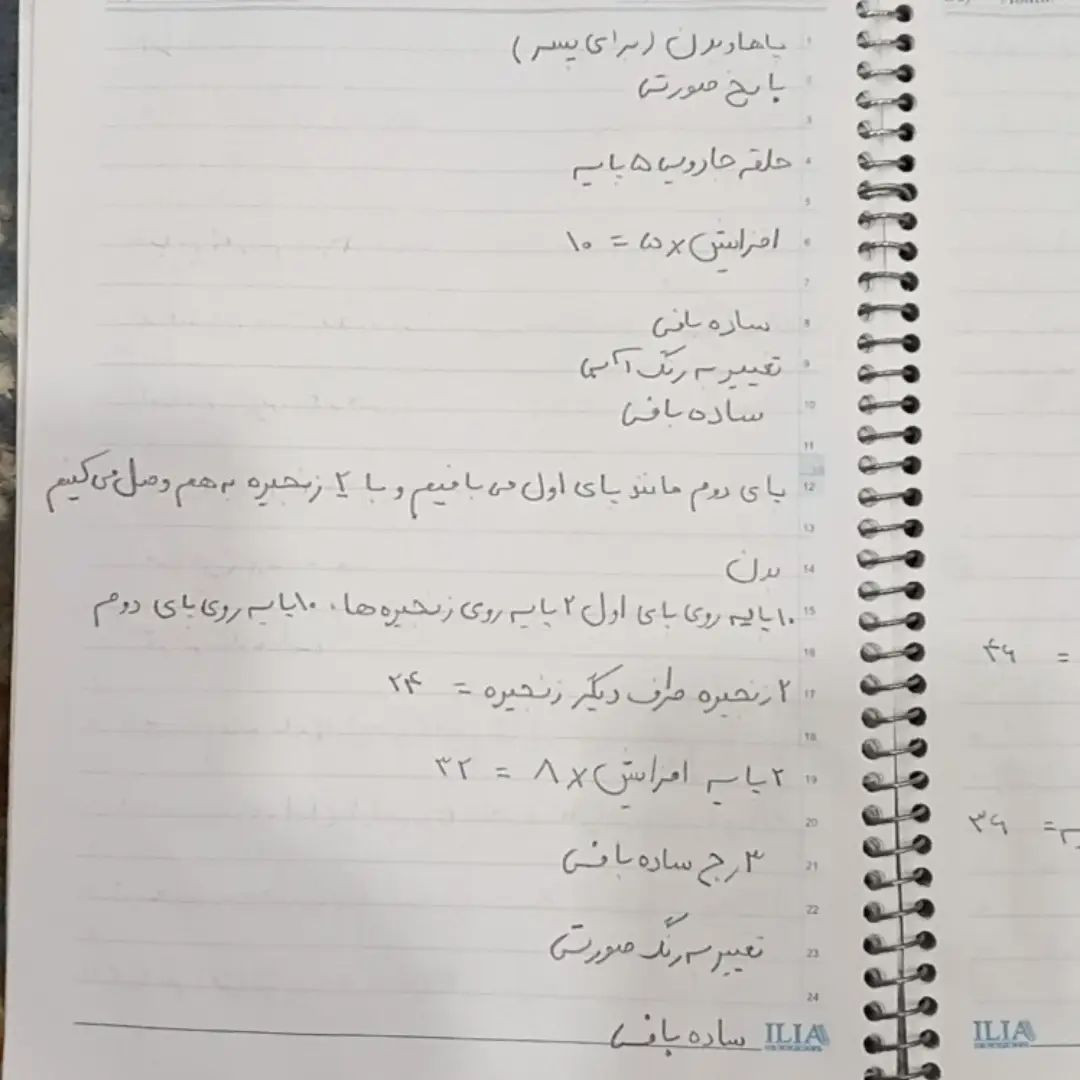 پاها و بدن (برای پسر)
با نخ صورتی
حلقه جادویی ۵ پایه
افزایش x ۵ = ۱۰
ساده بافی
تغییر به رنگ آبی
ساده بافی
پای دوم مانند پای اول می بافیم و با ۲ زنجیره به هم وصل می کنیم
بدن
۱۰ پایه روی پای اول ۲ پایه روی زنجیره ها، ۱۰ پایه روی پای دوم
۲ زنجیره طرف دیگر زنجیره = ۲۴
۲ پایه افزایش x ۸ = ۳۲
۳ رج ساده بافی
تغییر به رنگ صورتی
ساده بافی
ILIA
= ۴۶
= ۳۶
ILIA